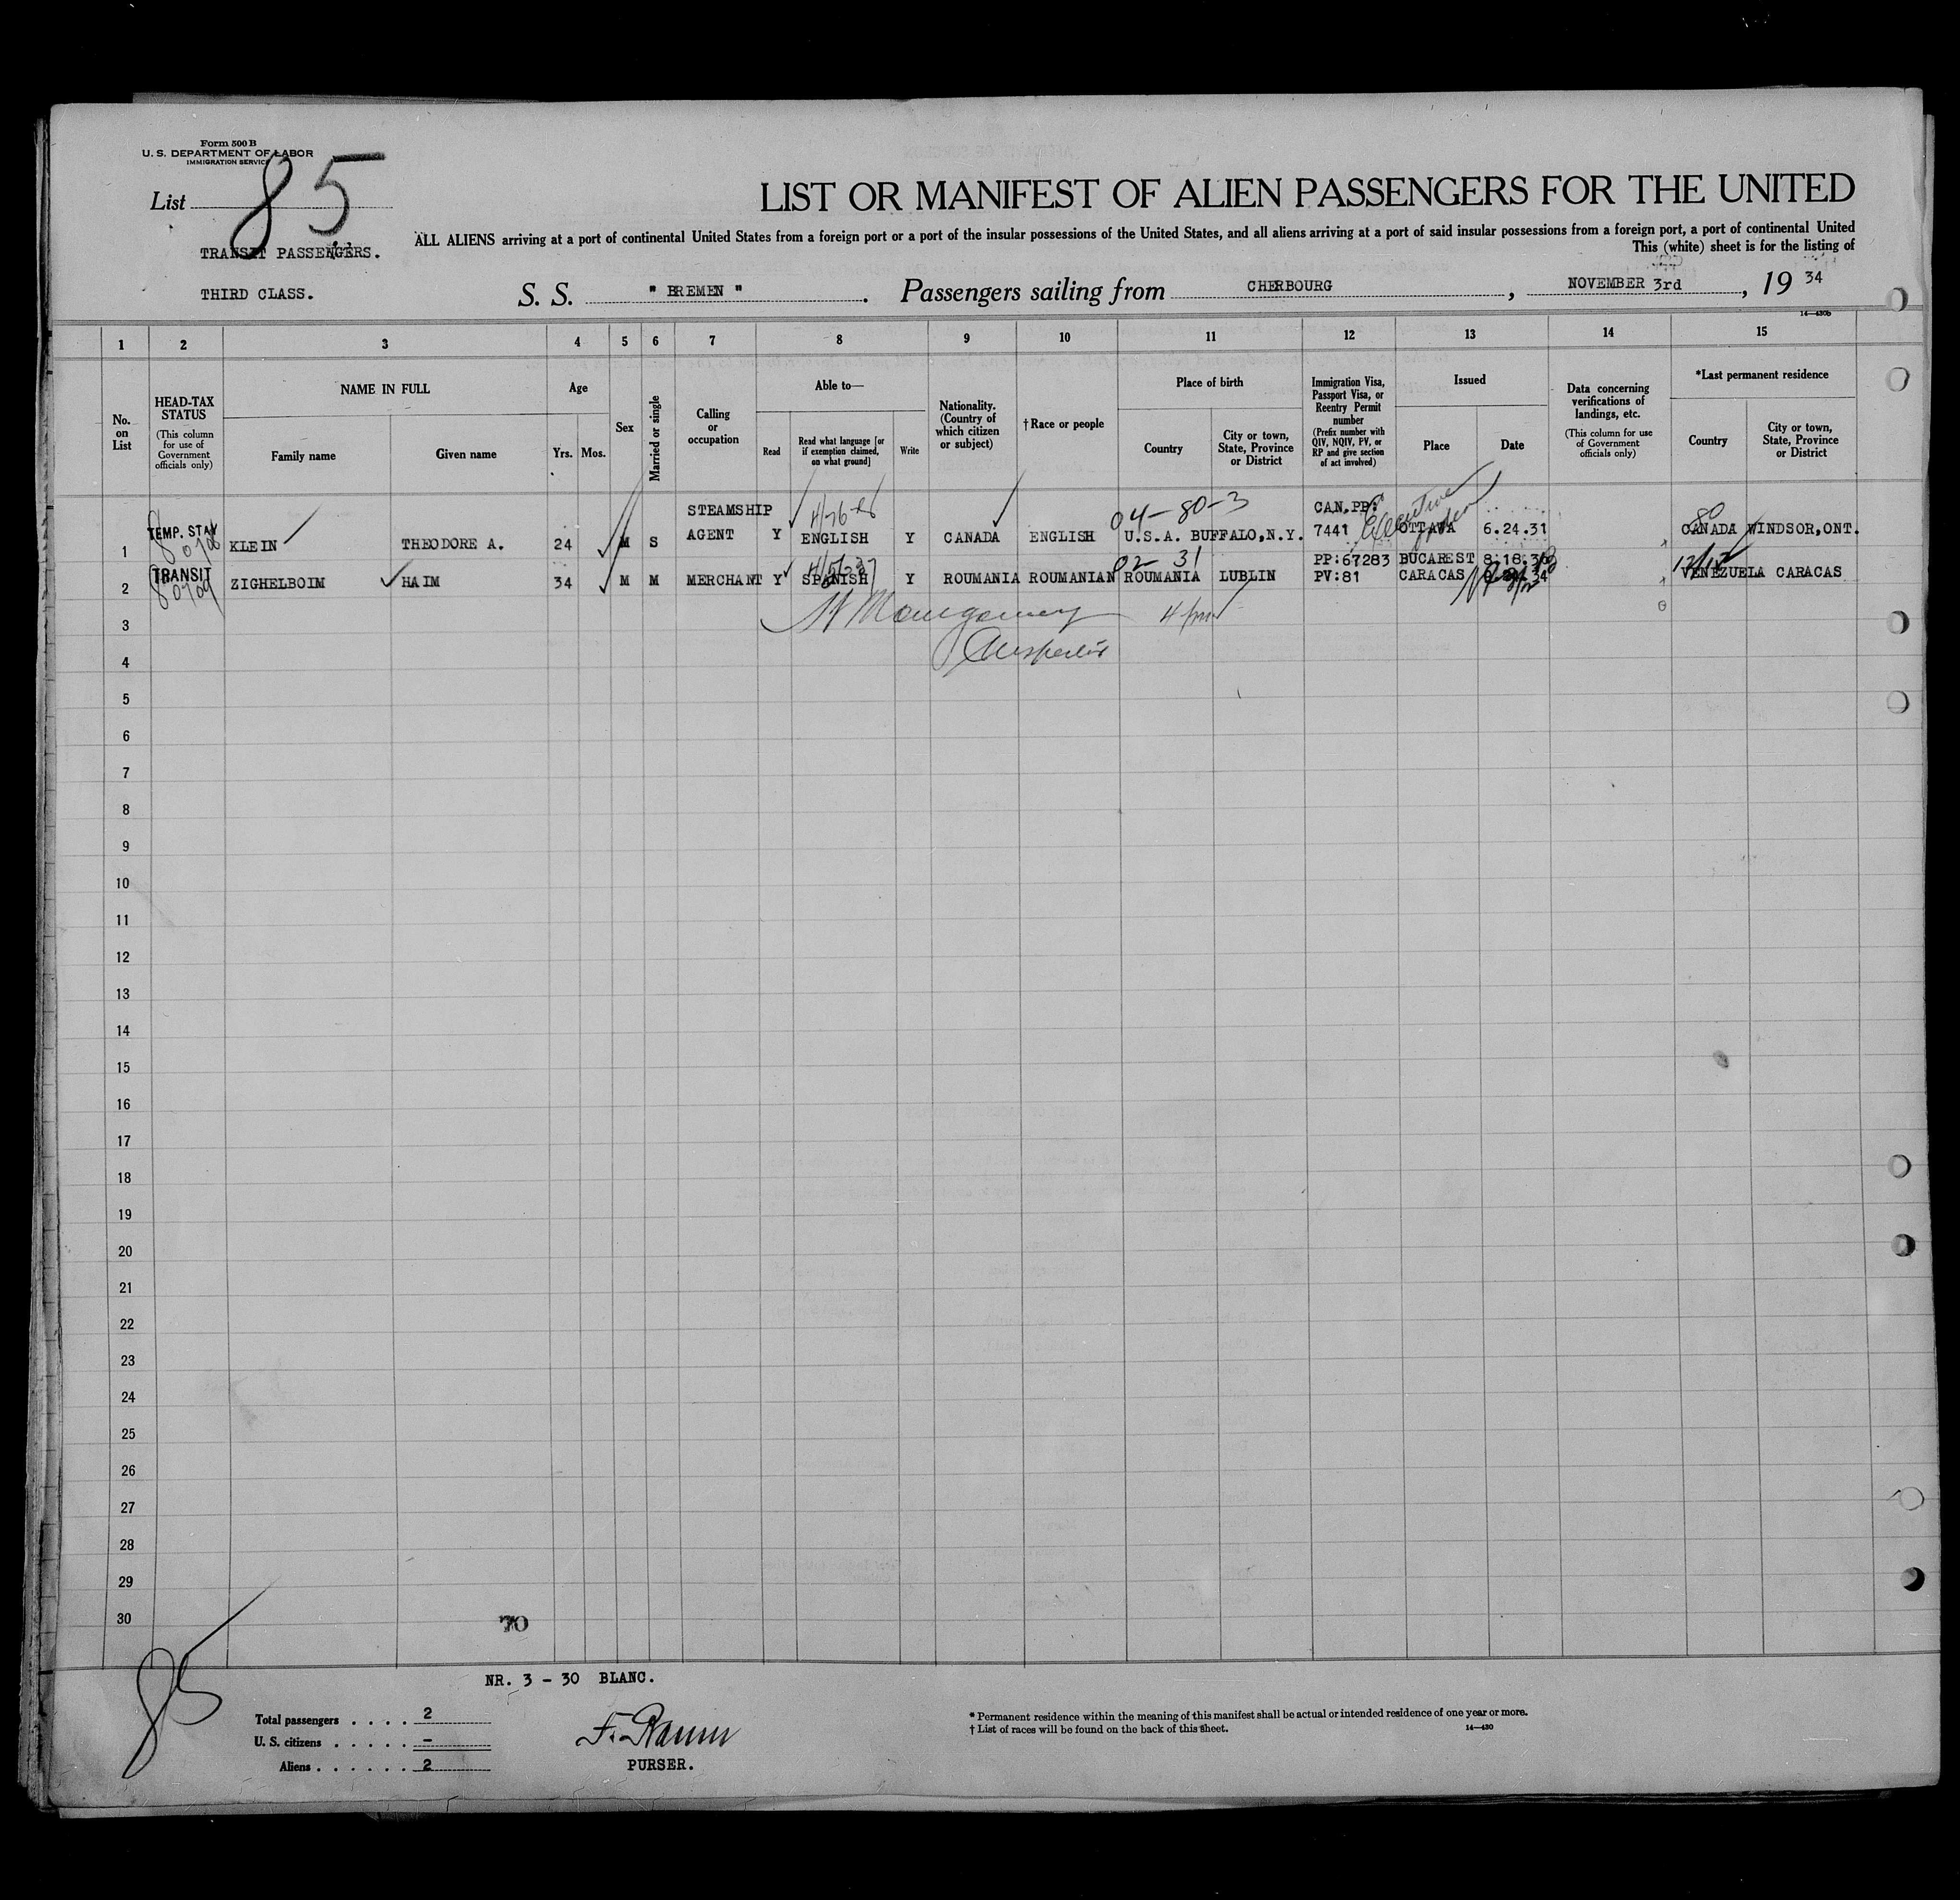 Form 500 B
U. S. DEPARTMENT OF LABOR
IMMIGRATION SERVICE
List 85
TRANSIT PASSENGERS.
THIRD CLASS.
LIST OR MANIFEST OF ALIEN PASSENGERS FOR THE UNITED
ALL ALIENS arriving at a port of continental United States from a foreign port or a port of the insular possessions of the United States, and all aliens arriving at a port of said insular possessions from a foreign port, a port of continental United
This (white) sheet is for the listing of
S. S. " BREMEN " . Passengers sailing from CHERBOURG , NOVEMBER 3rd , 19 34
14—430b
1 2 3 4 5 6 7 8 9 10 11 12 13 14 15
No. on List
HEAD-TAX STATUS
(This column for use of Government officials only)
NAME IN FULL
Family name
Given name
Age
Yrs. Mos.
Sex
Married or single
Calling or occupation
Able to—
Read
Read what language [or if exemption claimed, on what ground]
Write
Nationality. (Country of which citizen or subject)
†Race or people
Place of birth
Country
City or town, State, Province or District
Immigration Visa, Passport Visa, or Reentry Permit number
(Prefix number with QIV, NQIV, PV, or RP and give section of act involved)
Issued
Place
Date
Data concerning verifications of landings, etc.
(This column for use of Government officials only)
*Last permanent residence
Country
City or town, State, Province or District
04-80-3
80
1 TEMP. STAY KLEIN THEODORE A. 24 M S STEAMSHIP AGENT Y ENGLISH Y CANADA ENGLISH U.S.A. BUFFALO,N.Y. CAN.PP: 7441 OTTAWA 6.24.31 CANADA WINDSOR,ONT.
Executive Order
02-31
2 TRANSIT ZIGHELBOIM HAIM 34 M M MERCHANT Y SPANISH Y ROUMANIA ROUMANIAN ROUMANIA LUBLIN PP:67283 BUCAREST
PV:81 CARACAS VENEZUELA CARACAS
3 Montgomery
4
5
6
7
8
9
10
11
12
13
14
15
16
17
18
19
20
21
22
23
24
25
26
27
28
29
30
70
85
NR. 3 - 30 BLANC.
Total passengers . . . . 2
U. S. citizens . . . . . -
Aliens . . . . . . 2
PURSER.
* Permanent residence within the meaning of this manifest shall be actual or intended residence of one year or more.
† List of races will be found on the back of this sheet.
14—430